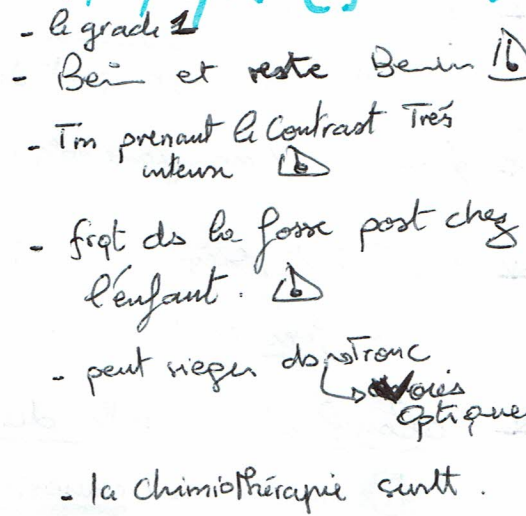 - le grade 1
- Benin et reste Benin
- Tm prenant le Contrast Trés
intense
- frqt ds la fosse post chez
l'enfant.
- peut sieger ds Tronc
voies
optique
- la chimiothérapie surtt.